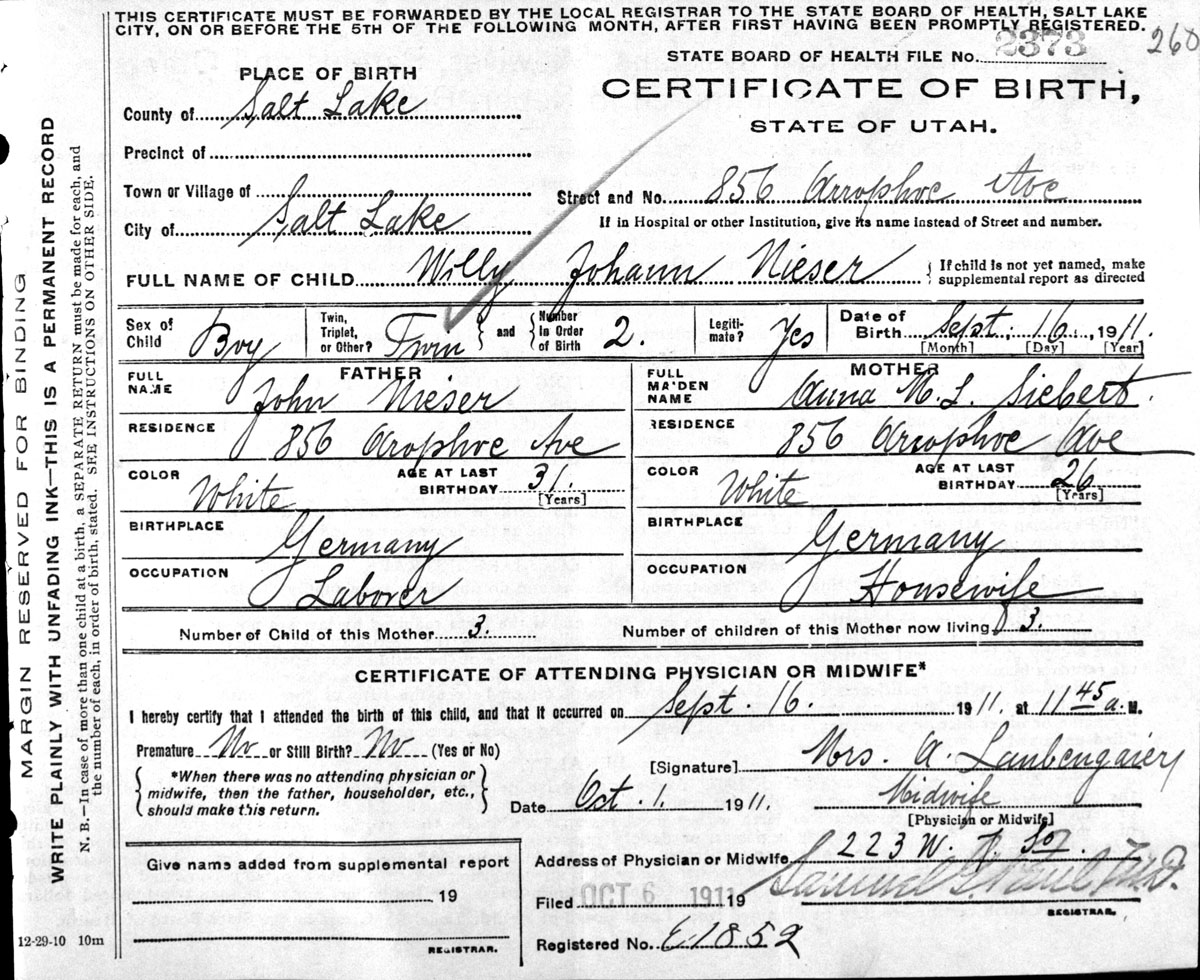 THIS CERTIFICATE MUST BE FORWARDED BY THE LOCAL REGISTRAR TO THE STATE BOARD OF HEALTH, SALT LAKE
CITY, ON OR BEFORE THE 5TH OF THE FOLLOWING MONTH, AFTER FIRST HAVING BEEN PROMPTLY REGISTERED.
STATE BOARD OF HEALTH FILE No. 2373 260
PLACE OF BIRTH
CERTIFICATE OF BIRTH,
STATE OF UTAH.
County of Salt Lake
Precinct of
Town or Village of
Street and No. 856 Ave
City of Salt Lake
If in Hospital or other Institution, give its name instead of Street and number.
FULL NAME OF CHILD Willy Johann Nieser { If child is not yet named, make
supplemental report as directed
Sex of Child Boy Twin, Triplet, or Other? Twin } and { Number in Order of Birth 2. Legitimate? Yes Date of Birth Sept. 16, 1911.
[Month] [Day] [Year]
FATHER
FULL NAME John Nieser
RESIDENCE 856 Ave
COLOR White AGE AT LAST BIRTHDAY 31. [Years]
BIRTHPLACE Germany
OCCUPATION Laborer
MOTHER
FULL MAIDEN NAME Anna M. L. Siebert.
RESIDENCE 856 Ave
COLOR White AGE AT LAST BIRTHDAY 26 [Years]
BIRTHPLACE Germany
OCCUPATION Housewife
Number of Child of this Mother 3. Number of children of this Mother now living 3.
CERTIFICATE OF ATTENDING PHYSICIAN OR MIDWIFE*
I hereby certify that I attended the birth of this child, and that it occurred on Sept. 16. 1911. at 11 45 a. M.
Premature No or Still Birth? No (Yes or No)
*When there was no attending physician or
midwife, then the father, householder, etc.,
should make this return.
[Signature] Mrs. A.
Date Oct. 1. 1911. Midwife
[Physician or Midwife]
Address of Physician or Midwife 223 W.
Filed OCT 6 1911 19 Samuel
REGISTRAR.
Registered No. E1852
Give name added from supplemental report
19
REGISTRAR.
12-29-10 10m
MARGIN RESERVED FOR BINDING
WRITE PLAINLY WITH UNFADING INK—THIS IS A PERMANENT RECORD
N. B.—In case of more than one child at a birth, a SEPARATE RETURN must be made for each, and
the number of each, in order of birth, stated. SEE INSTRUCTIONS ON OTHER SIDE.